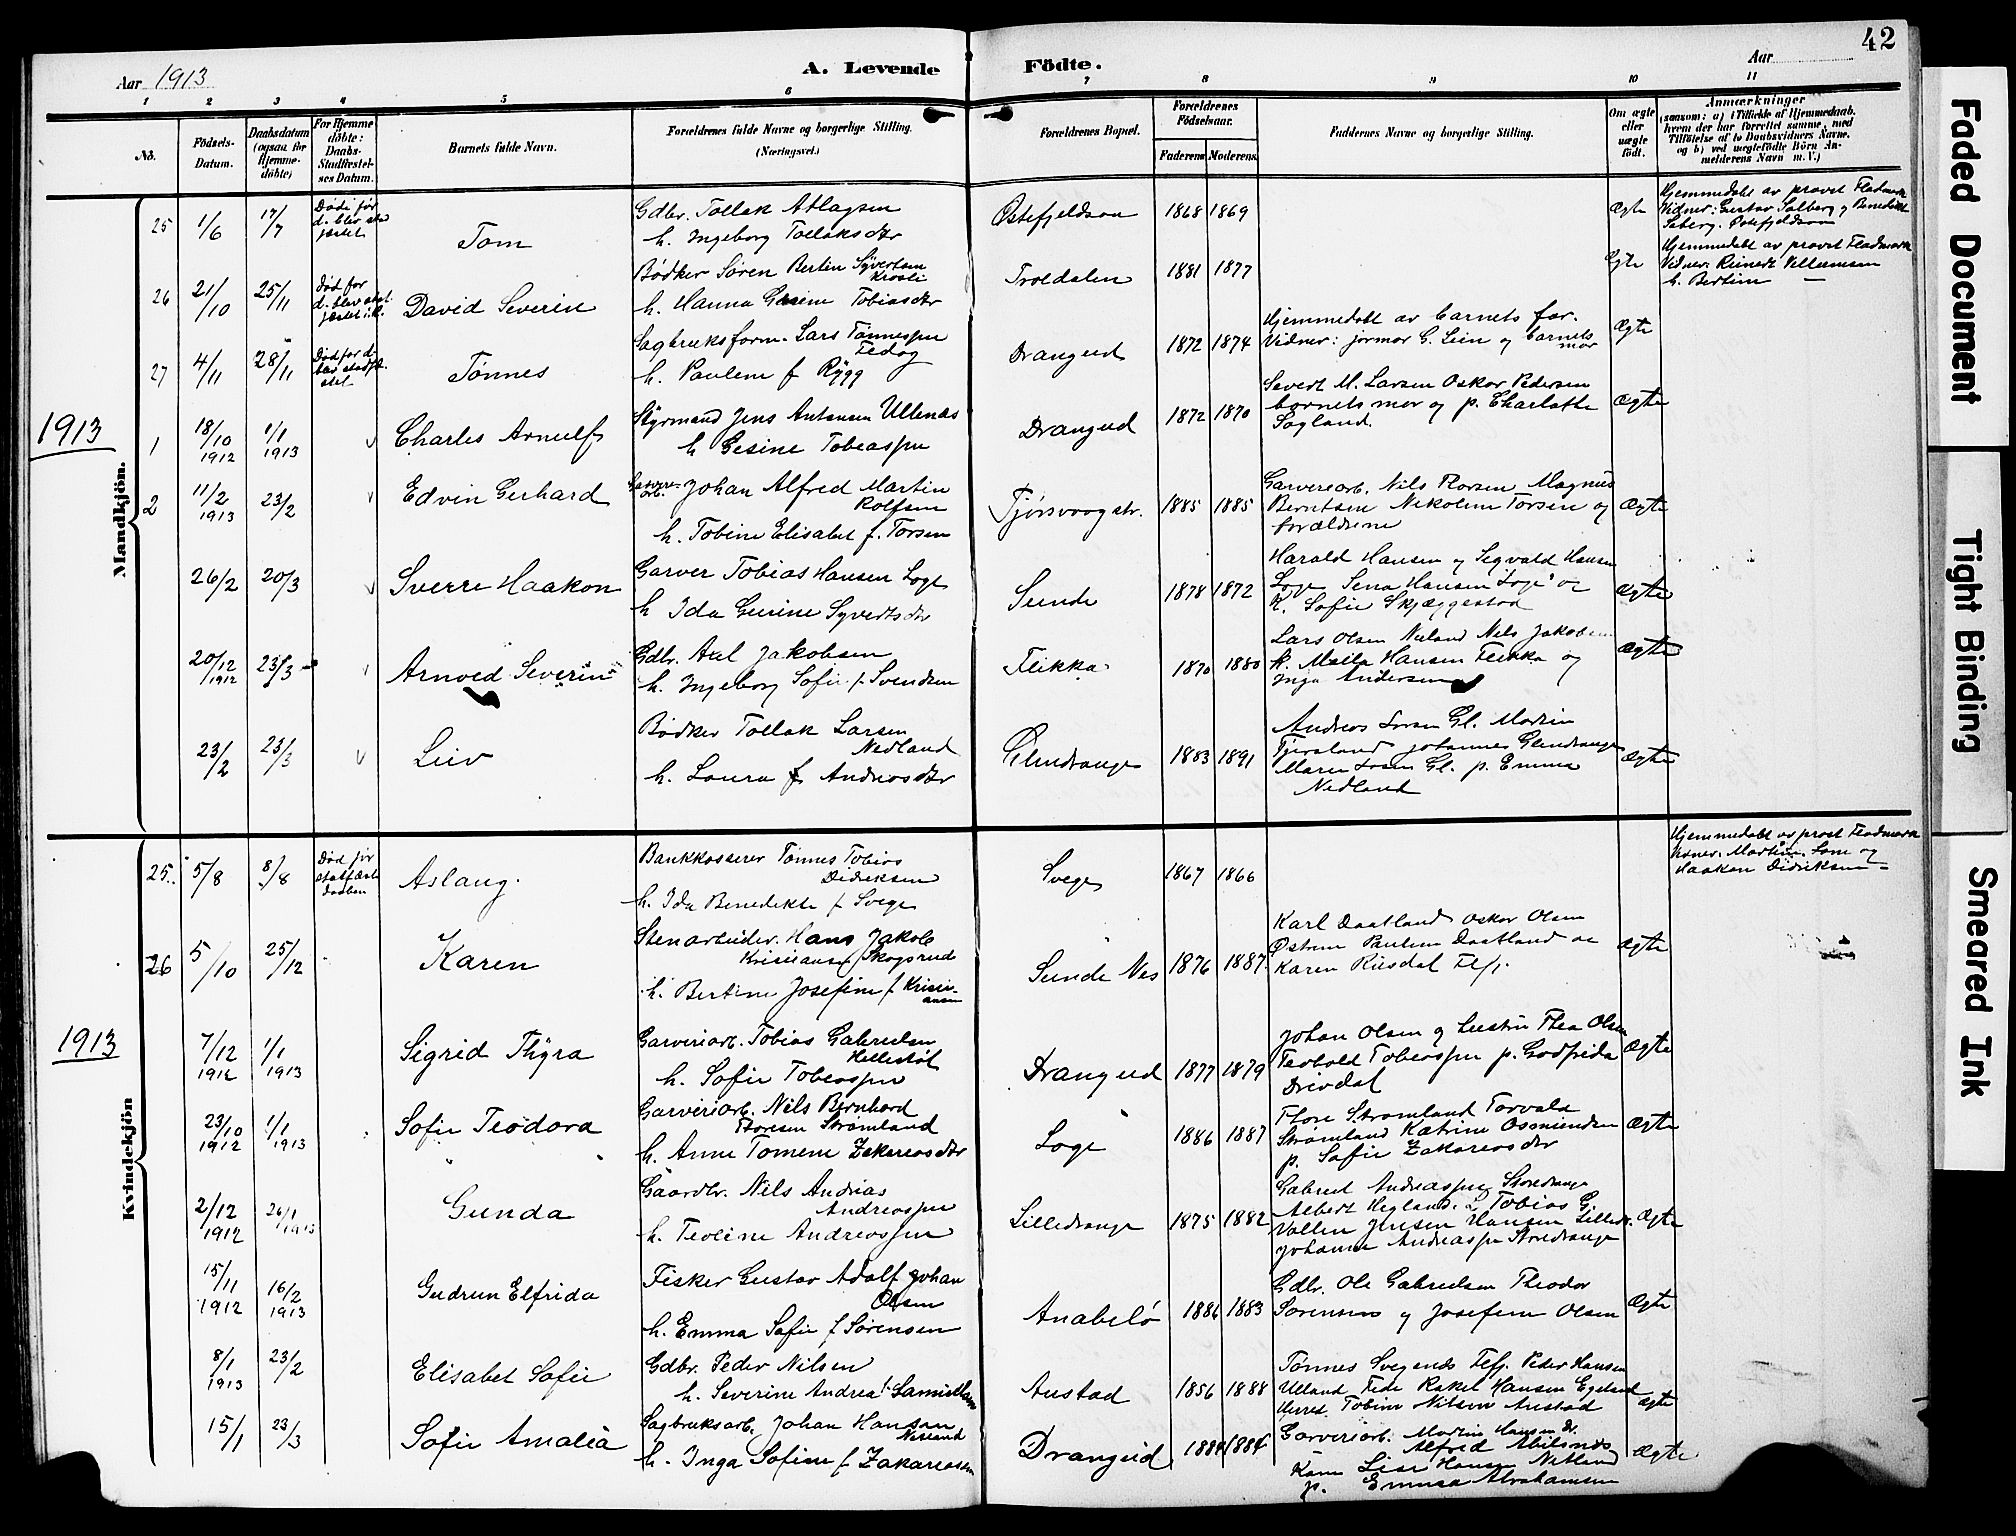 42
Aar 1913
A. Levende Födte.
Aar
1 2 3 4 5 6 7 8 9 10 11
No.
Födsels-Datum.
Daabsdatum (ogsaa for Hjemme-döbte)
For Hjemme döbte: Daabs-Stadfæstel-ses Datum.
Barnets fulde Navn.
Forældrenes fulde Navne og borgerlige Stilling. (Næringsvei.)
Forældrenes Bopæl.
Forældrenes Födselsaar.
Faderens Moderens
Faddernes Navne og borgerlige Stilling.
Om ægte eller uægte födt.
Anmærkninger
(saasom: a) i Tilfælde af Hjemmedaab, hvem der har forrettet samme, med Tilföielse af to Daabsvidners Navne. og b) ved uegtefödte Börn An-melderens Navn m. V.)
Mandkjön.
25 1/6 17/7 Tom
Gdbr. Tollak Atlagsen
h. Ingeborg Tollaksdtr
Østefjeldson 1868 1869 Ægte
Hjemmedøbt av provst Fladmark
Vidner: Gustav Salberg og Benedikt
26 21/10 25/11 David Severin
Bødker Søren Bertin Syvertsen
h. Hanna Gesine Tobiasdtr
Troldalen 1881 1877 Egte
Hjemmedøbt av provst Fladmark
h. Bertine
27 4/11 28/11 Tønnes
Sagbruksform. Lars Tønnessen
Fedog
h. Pauline f Rygg
Drangeid 1872 1874
Hjemmedøbt av barnets far.
Vidner: jormor G. Lein og barnets mor
Ægte
1913
1 18/10 1912 1/1 1913 Charles Arnulf
Styrmand Jens Antonsen Ullenæs
h Gesine Tobiassen
Drangeid 1872 1870
Severt M. Larsen Oskar Pedersen
barnets mor og p. Charlotte
Sogland.
Ægte
2 11/2 1913 23/2 Edvin Gerhard
Garveri-arb. Johan Alfred Martin
Rolfsen
h. Tobine Elisabet f. Torsen
Tjørsvaagstr. 1885 1885
Garveriarb. Nils Thorsen Magnus
Berntsen Nikoline Torsen og
forældrene
Ægte
26/2 20/3 Sverre Haakon
Garver Tobias Hansen Loge
h Ida Gurine Syvertsdtr
Sunde 1878 1872
Harald Hansen og Segvald Hansen
Loge Sena Hansen Loge og
k. Sofie Skjæggestad
Ægte
20/12 1912 23/3 Arnoed Severin
Gdbr. Axl Jakobsen
h. Ingeborg Sofie f Svendsen
Flikka 1870 1880
Lars Olsen Neland Nels Jakobsen
k. Malla Hansen Flikka og
Inga Andersen
Ægte
23/2 23/3 Leiv
Bødker Tollak Larsen
Nedland
h. Laura f Andreasdtr
Glendrange 1883 1891
Andreas Larsen Gl. Martin
Tjersland Johannes Glendrange
Maren Larsen Gl. p. Emma
Nedland
Ægte
Kvindekjön
25 5/8 8/8 Død før stadfæst daaben Aslaug.
Bankkasserer Tønnes Tobias
Didriksen
h. Ida Benedikte f Svege
Svege 1867 1866
Hjemmedøbt av prost Fladmark
Haakon Didriksen
26 5/10 25/12 Karen
Stenarbeider. Hans Jakob
Kristiansen Skogsrud
h. Bertine Josefine f Kristi-ansen
Sunde Nes 1876 1887
Karl Daatland Oskar Olsen
Østrem Pauline Daatland og
Karen Risdal Flf.
Ægte
1913
7/12 1912 1/1 1913 Sigrid Thyra
Garveriarb. Tobias Gabrielsen
Hellestøl
h. Sofie Tobiassen
Drangeid 1877 1879
Johan Olsen og hustru Thea Olsen
Teobold Tobiassen p. Godfrida
Drivdal
Ægte
23/10 1912 1/1 1913 Sofie Teodora
Garveriarb. Nils Bernhard
Thoresen Strømland
h. Anne Tomine Zakariasdtr
Loge 1886 1887
Thore Strømland Torvald
Strømland Katrine Osmundsen
p. Sofie Zakariasdtr
Ægte
2/12 1912 26/1 1913 Gunda
Gaardbr. Nils Andrias
Andreassen
h. Teoline Andreassen
Lilledrange 1875 1882
Gabriel Andreassen Storedrange
Albert Hegland Tobias G
Vollen Jensen Hansen Lilledr.
Johanne Andreassen Storedrange
Ægte
15/11 1912 16/2 1913 Gudrun Elfrida
Fisker Gustav Adolf Johan
Olsen
h. Emma Sofie f Sørensen
Anabelø 1886 1883
Gdbr. Ole Gabrielsen Theodor
Sørensen og Josefine Olsen
Ægte
8/1 1913 23/2 Elisabet Sofie
Gdbr. Peder Nilsen
h. Severine Andrea
Austad 1856 1888
Tønnes Svegende Flf. Peder Hansen
Ulland Fede Rakel Hansen Egeland
Tobine Nilsen Austad
Ægte
15/1 23/3 Sofie Amalia
Sagbruksarb. Johan Hansen
h. Inga Sofine f Zakariassen
Drangeid 1884 1884
Garveriarb. Martin Hansen Dr.
Alfred
Lise Hansen Netland
p. Emma Abrahamsen
Ægte
Faded Document
Tight Binding
Smeared Ink